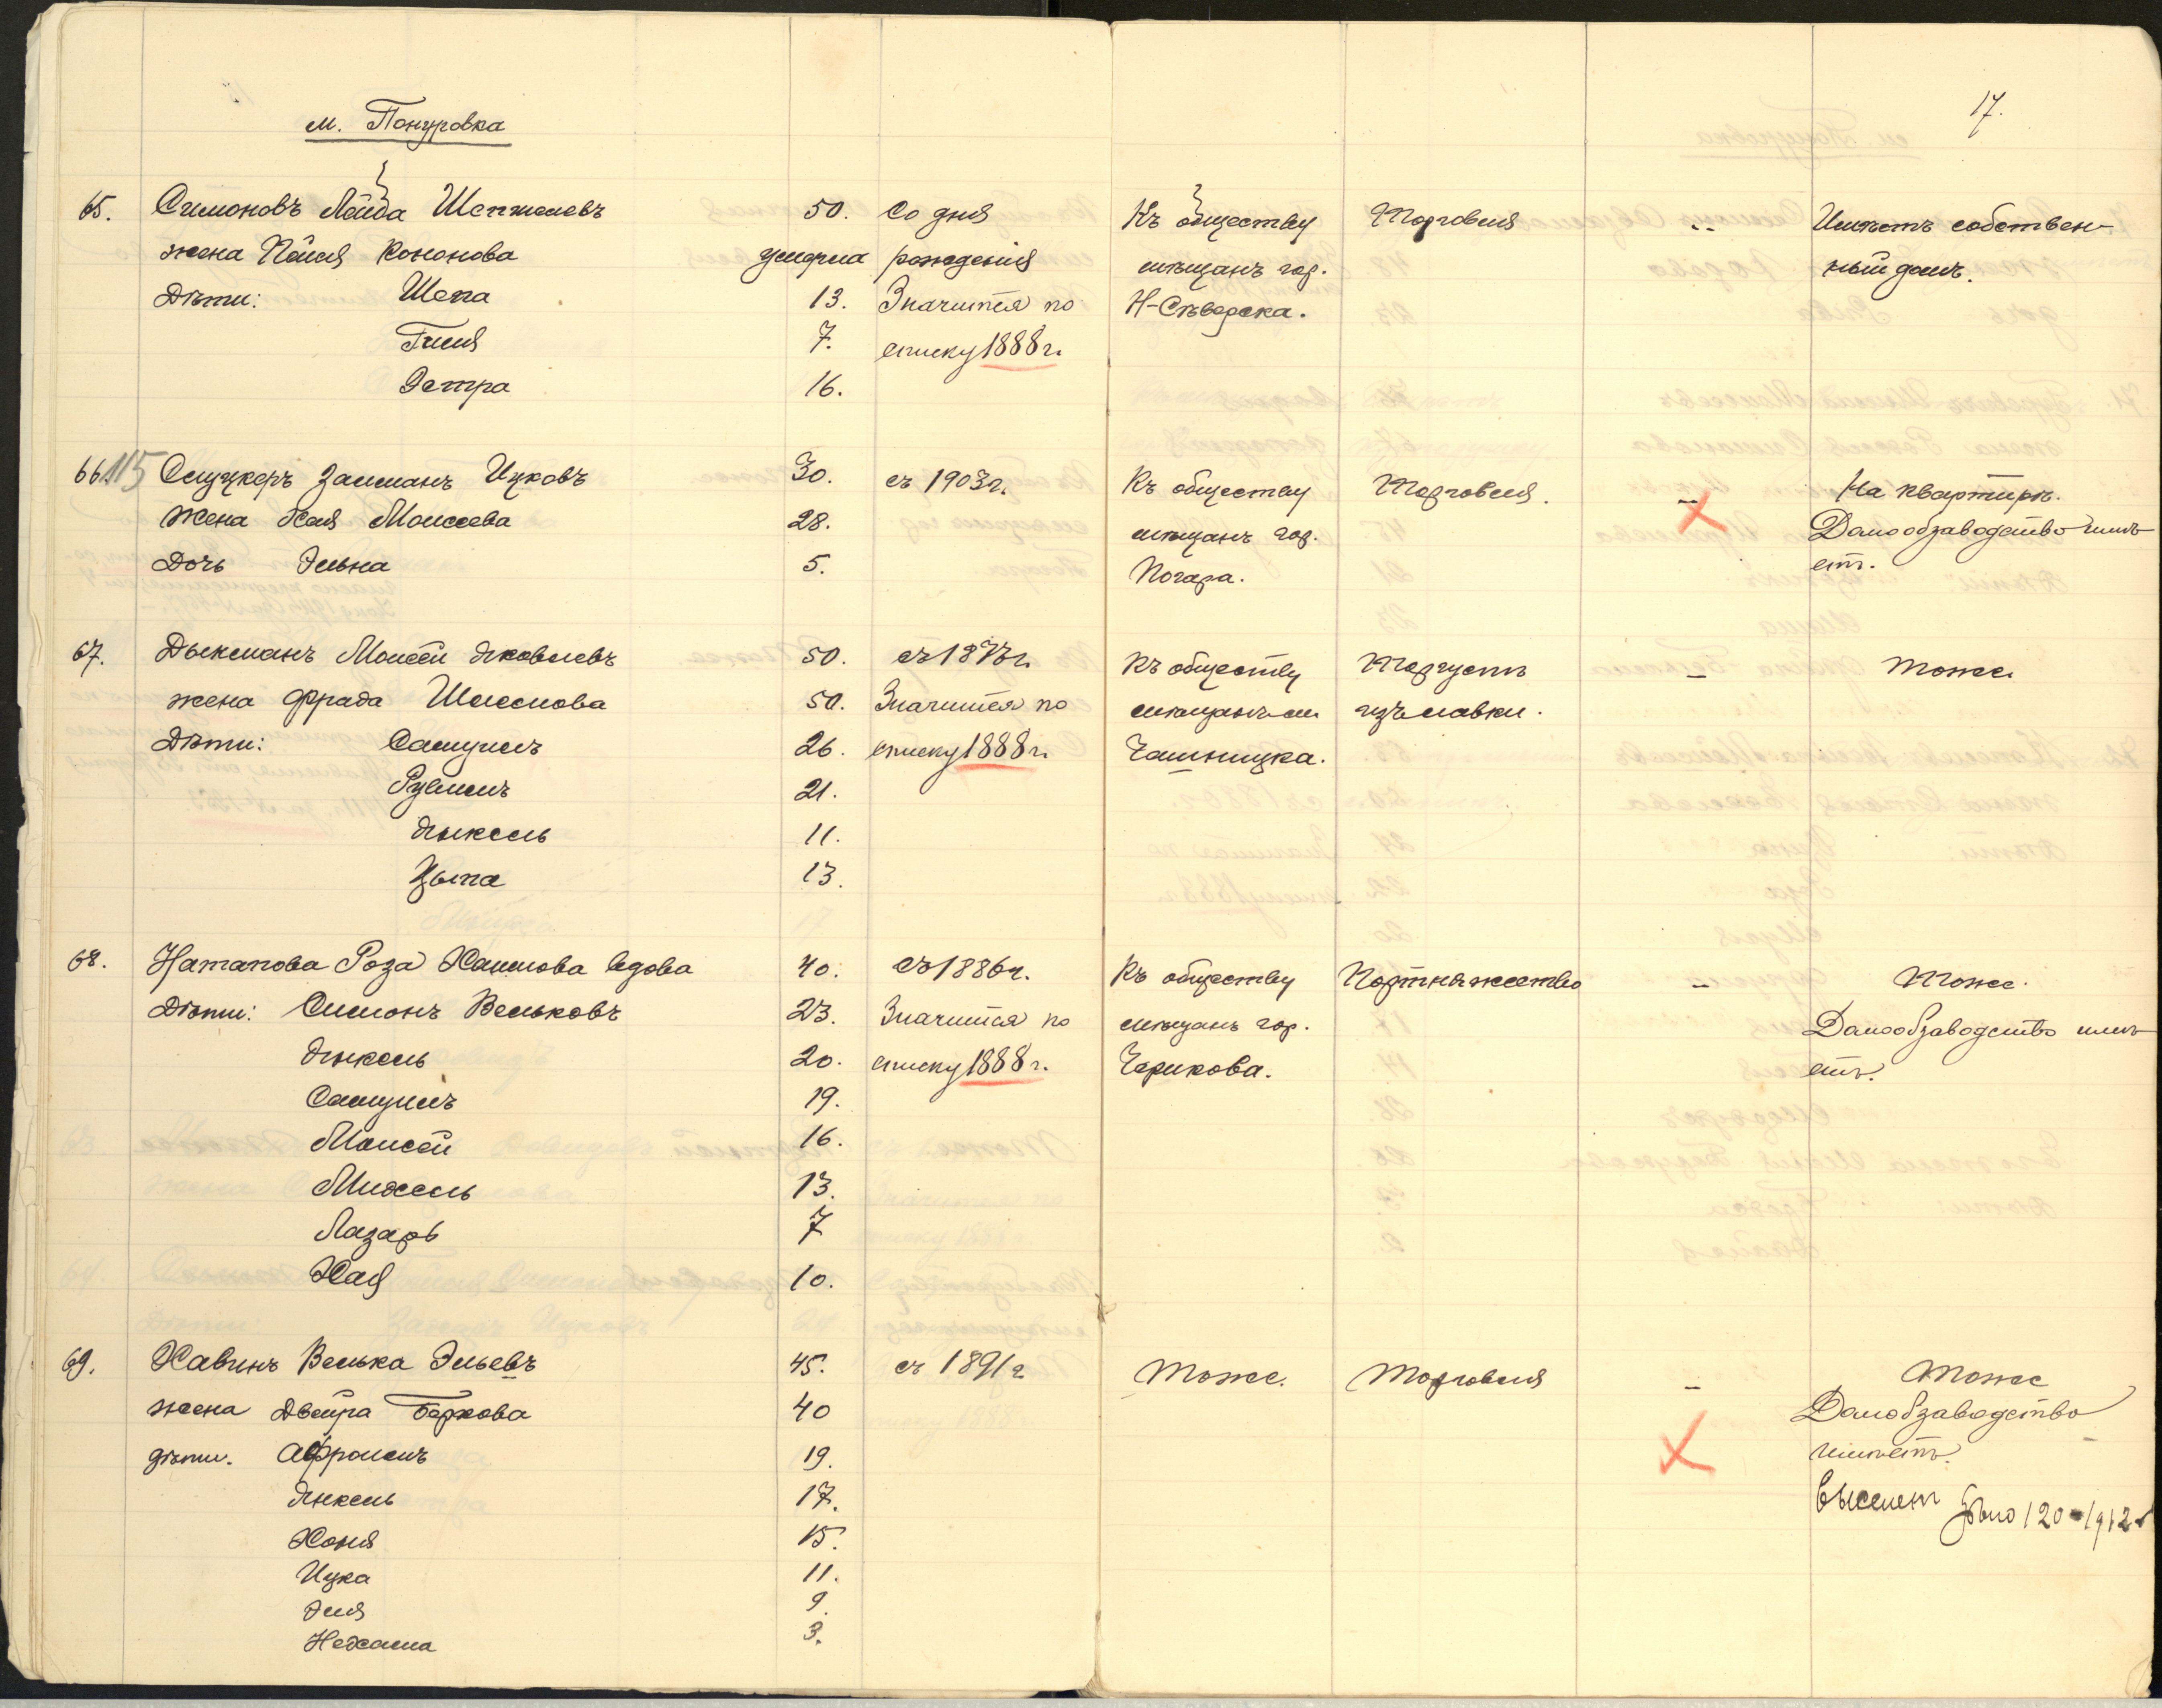 17.
м. Понуровка
65. Симоновъ Лейба Шепшелевъ 50. Со дня Къ обществу Торговля „ Имѣетъ собствен-
жена Пэшя Кононова умерла рожденія мѣщанъ гор. ный домъ.
Дѣти: Шепа 13. Значится по Н-Сѣверска.
Гиля 7. списку 1888 г.
Эстра 16.
66. 115 Слуцкеръ Залманъ Ицковъ 30. съ 1903 г. Къ обществу Торговля. – На квартирѣ.
Жена Хая Моисеева 28. мѣщанъ гор. Домообзаводство имѣ
Дочь Эльна 5. Погара. етъ.
67. Дыкманъ Моисей Яковлевъ 50. съ 1873 г. Къ обществу Торгуетъ – Тоже.
жена Фрада Шлемова 50. Значится по мѣщанъ м. изъ лавки.
Дѣти: Самуилъ 26. списку 1888 г. Чашницка.
Рувимъ 21.
Янкель 11.
Цыпа 13.
68. Натапова Роза Хаимова вдова 40. съ 1886 г. Къ обществу Портняжество – Тоже.
Дѣти: Симонъ Вельковъ 23. Значится по мѣщанъ гор. Домообзаводство имѣ
Янкель 20. списку 1888 г. Черикова. етъ.
Самуилъ 19.
Моисей 16.
Михель 13.
Лазарь 7
Хая 10.
69. Хавинъ Велька Эльевъ 45. съ 1891 г Тоже. Торговля – Тоже
жена Двейра Беркова 40 Домобзаводство
дѣти. Афроимъ 19. имѣетъ.
Янкель 17. выселен дѣло 120-1912 г
Хоня 15.
Ицка 11.
Эля 9.
Нехама 3.